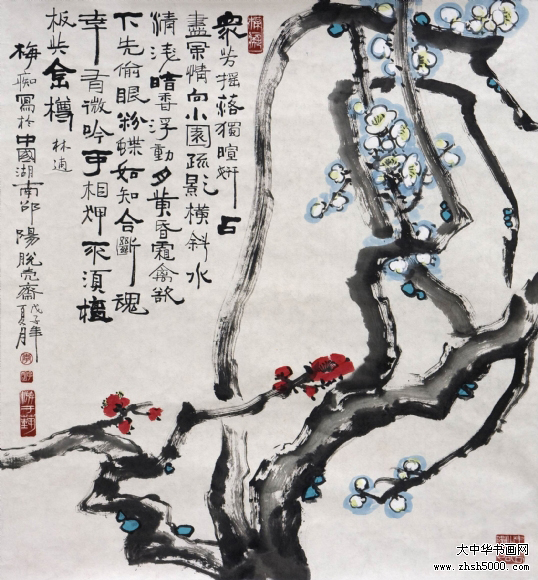 衆芳摇落獨暄妍占
盡風情向小園疏影横斜水
清浅暗香浮動月黄昏霜禽欲
下先偷眼粉蝶如知合斷魂
幸有微吟可相狎不須檀
板共金樽
林逋
梅痴寫於中國湖南邵陽脱壳齋戊子年夏月
大中华书画网
www.zhsh5000.com